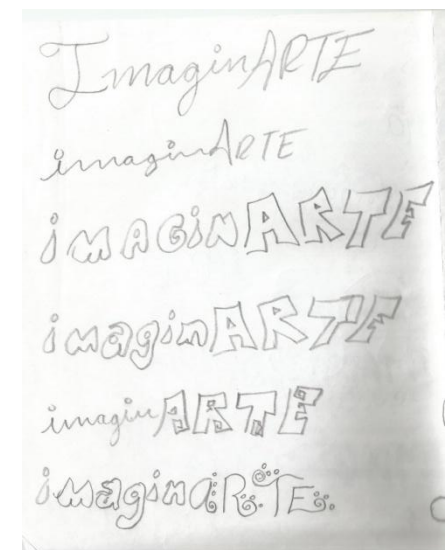 ImaginARTE
imaginARTE
iMAGiNARTE
imaginARTE
imaginARTE
imaginaRTE